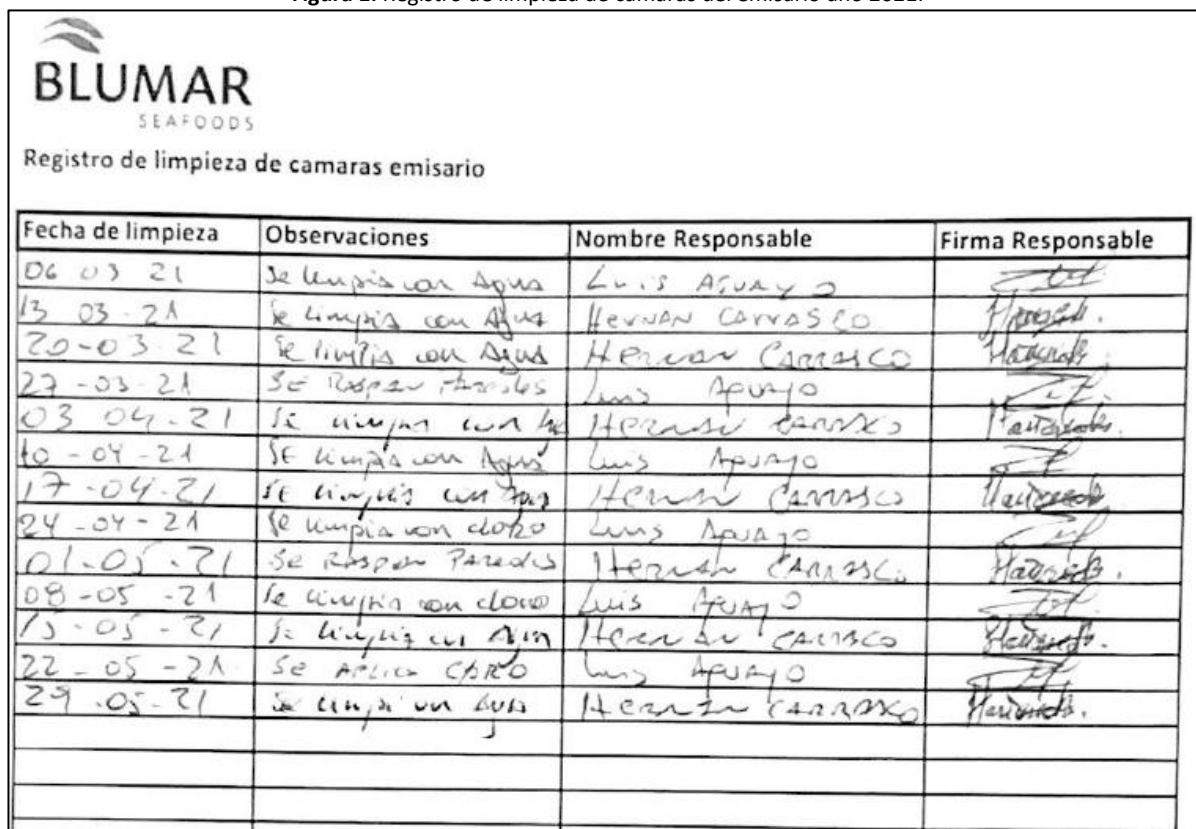 BLUMAR
SEAFOODS
Registro de limpieza de camaras emisario
Fecha de limpieza Observaciones Nombre Responsable Firma Responsable
06 03 21 Se limpia con Agua Luis AGUAYO
13 03 - 21 Se limpia con Agua HerNAN CArrASCO
20-03-21 Se limpia con Agua Hernan CARRASCO
27-03-21 SE Raspan Paredes Luis Aguayo
03 04-21 Se limpia con Hernan CARRASCO
10-04-21 SE limpia con Agua Luis Aguayo
17-04-21 SE limpia con Agua Hernan CARRASCO
24-04-21 Se limpia con cloro Luis Aguayo
01-05-21 Se Raspan Paredes Hernan CARRASCO
08-05-21 Se limpia con cloro Luis Aguayo
15-05-21 Se limpia con Agua Hernan CARRASCO
22-05-21 Se Aplica Cloro Luis Aguayo
29-05-21 Se limpia con Agua Hernan CARRASCO